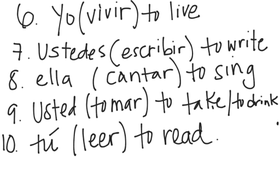 6. Yo (vivir) to live
7. Ustedes (escribir) to write
8. ella (cantar) to sing
9. Usted (tomar) to take/to drink
10. tú (leer) to read.